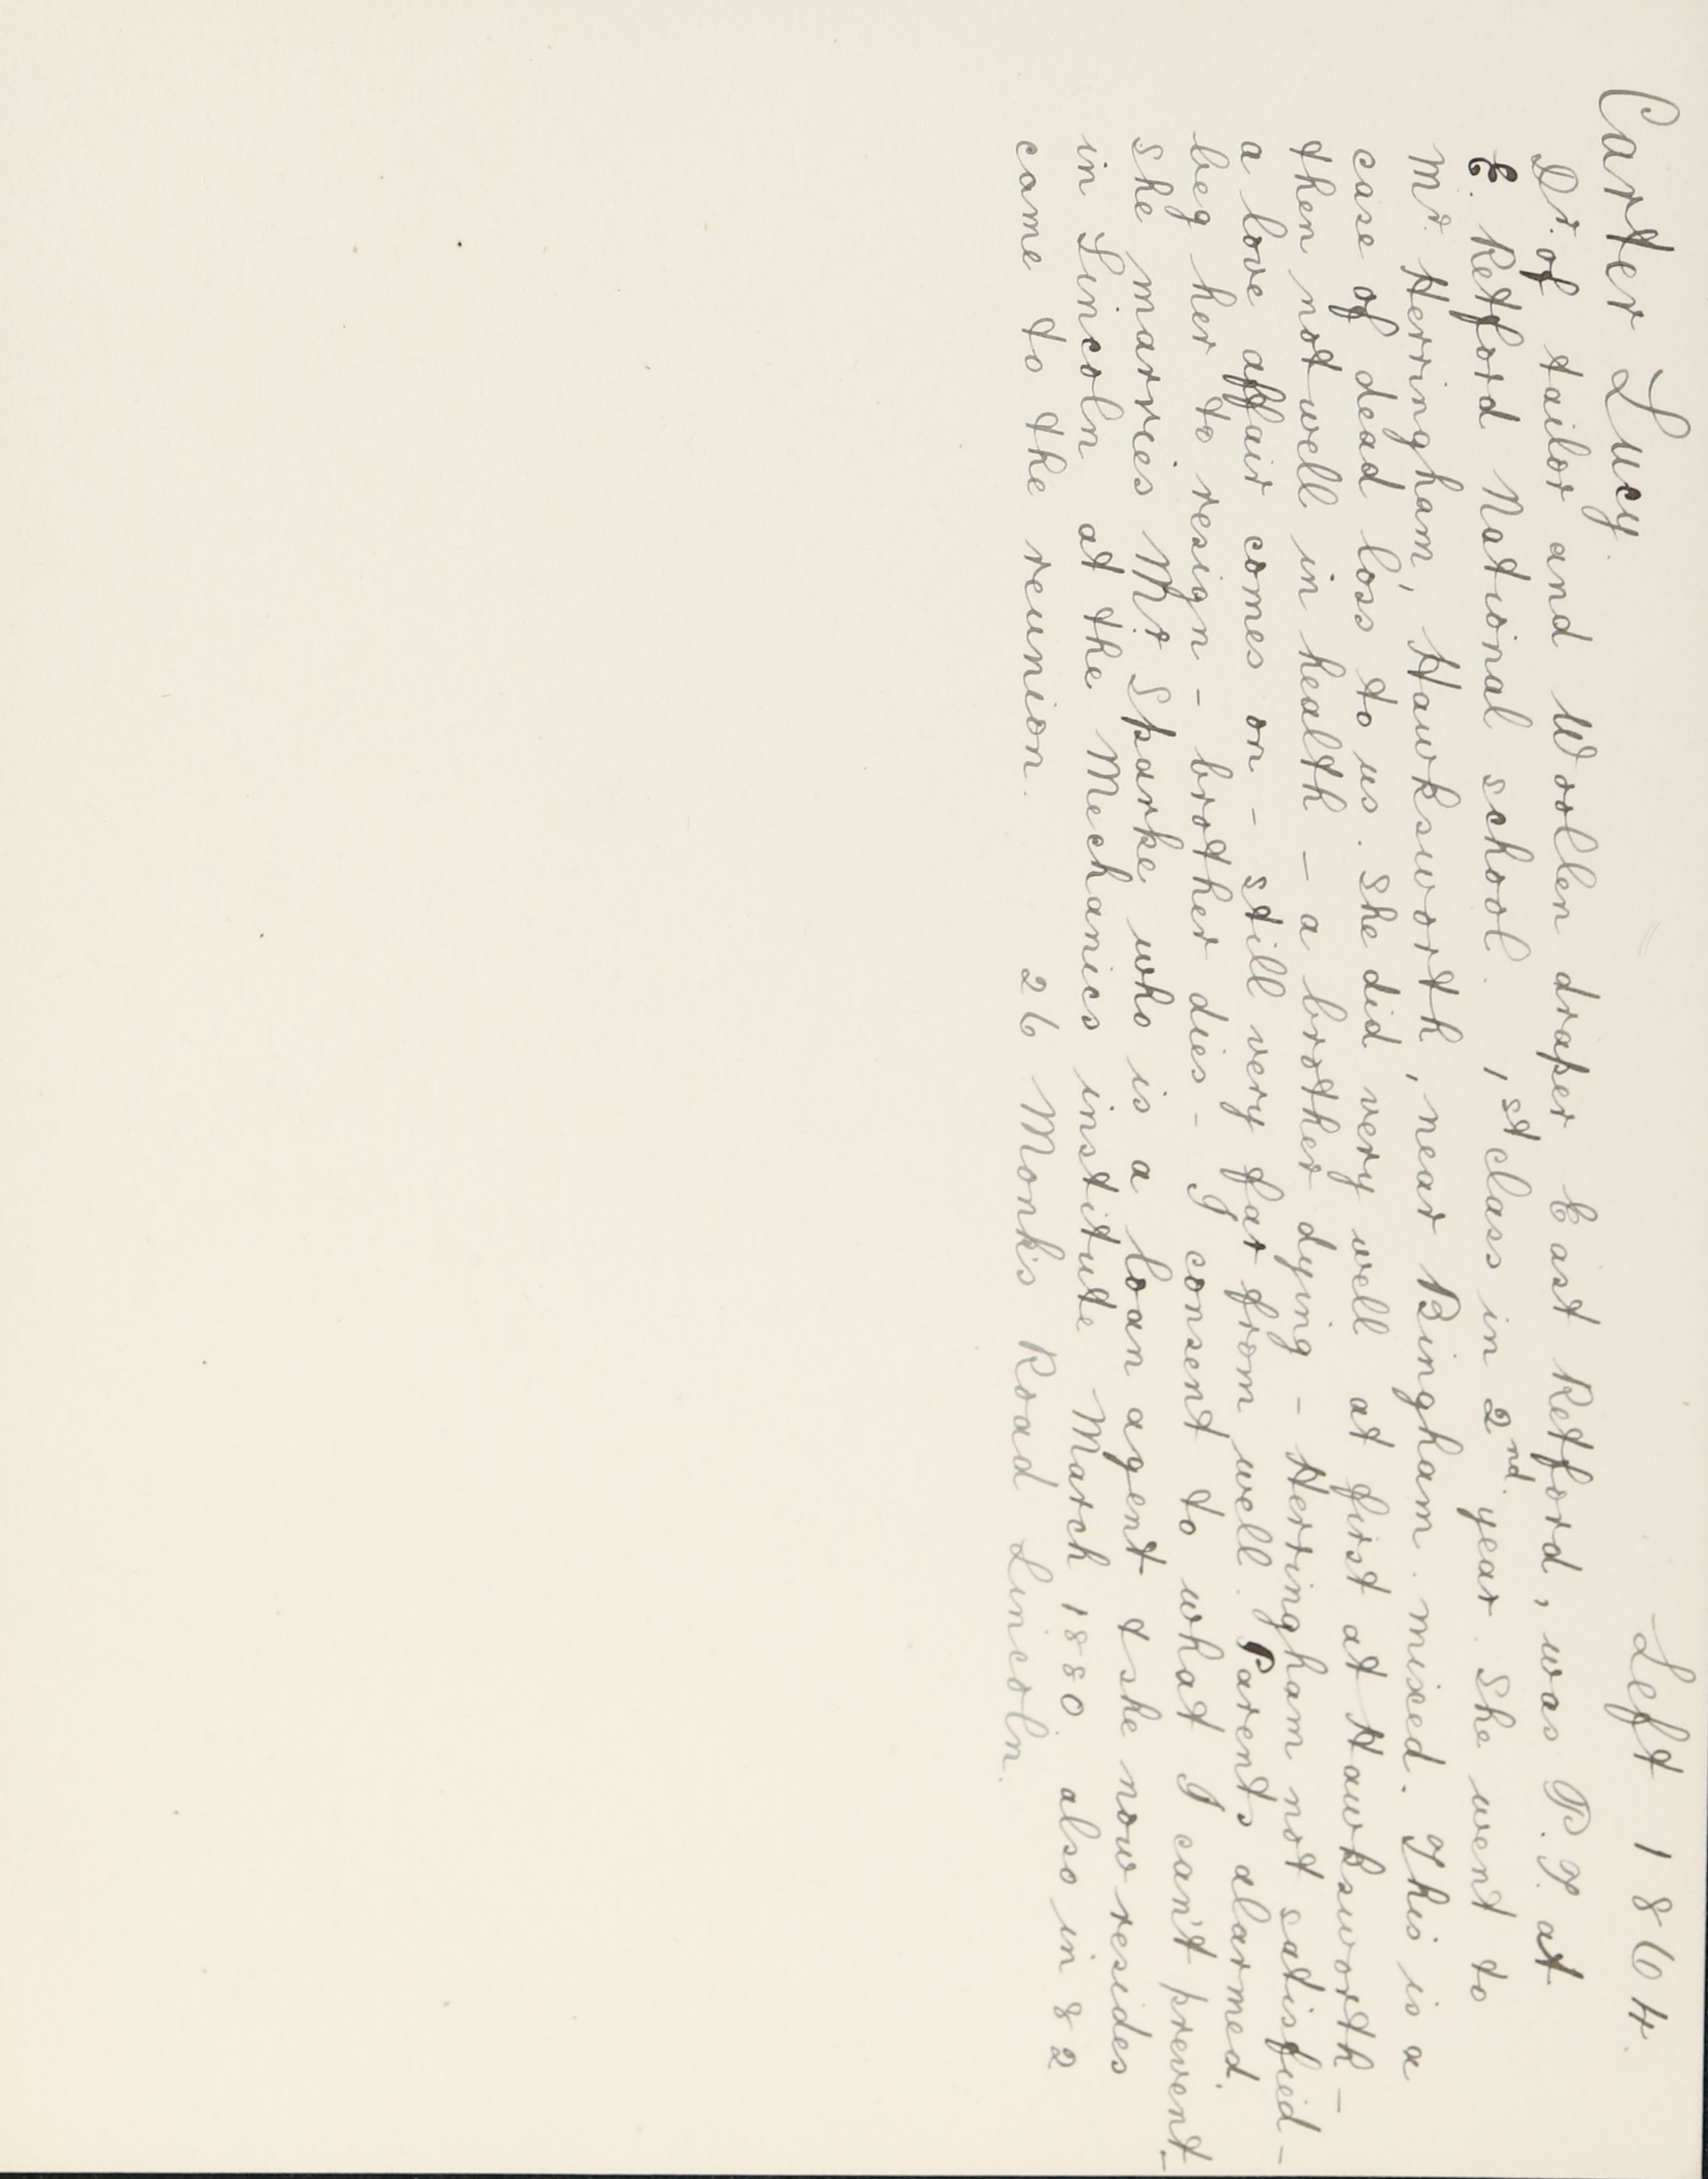 Carter Lucy. Left 1864.
Dr. of tailor and Woollen draper East Retford, was P.T. at
E. Retford National school. 1st class in 2nd. year. She went to
Mr. Herringham, Hawksworth, near Bingham. mixed. This is a
case of dead loss to us. She did very well at first at Hawksworth -
then not well in health - a brother dying - Herringham not satisfied -
a love affair comes on - still very far from well. Parents alarmed.
beg her to resign - brother dies - I consent to what I can't prevent -
she marries Mr. Sparke who is a loan agent & she now resides
in Lincoln at the Mechanics institute March 1880 also in 82
came to the reunion. 26 Monks Road Lincoln.